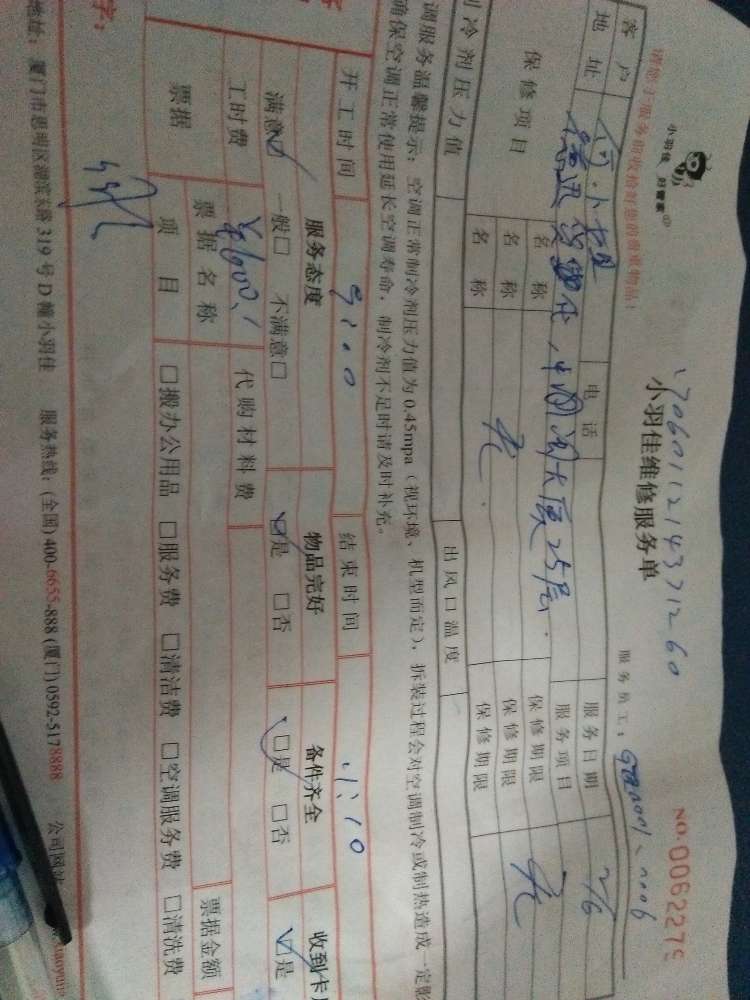 小羽佳 好管家
1706011214371260
NO.0062275
小羽佳维修服务单
请您于服务前收拾好您的贵重物品！
服务员工：
客户
电话
服务日期 2/6
地址
中闽大厦25层.
服务项目
保修项目
名称
保修期限
名称
无.
保修期限
无
名称
保修期限
制冷剂压力值
出风口温度
调服务温馨提示：空调正常制冷剂压力值为0.45mpa（视环境、机型而定），拆装过程会对空调制冷或制热造成一定影
确保空调正常使用延长空调寿命，制冷剂不足时请及时补充。
开工时间 9:00
结束时间
服务态度
物品完好
备件齐全
收到卡
满意☑ 一般□ 不满意□
☑是 □否
☑是 □否
☑是
工时费
代购材料费
票据
票据名称
票据金额
项目
□搬办公用品 □服务费 □清洁费 □空调服务费 □清洗费
字：
地址：厦门市思明区湖滨东路319号D幢小羽佳 服务热线：(全国)400-6655-888 (厦门)0592-5178888 公司网站